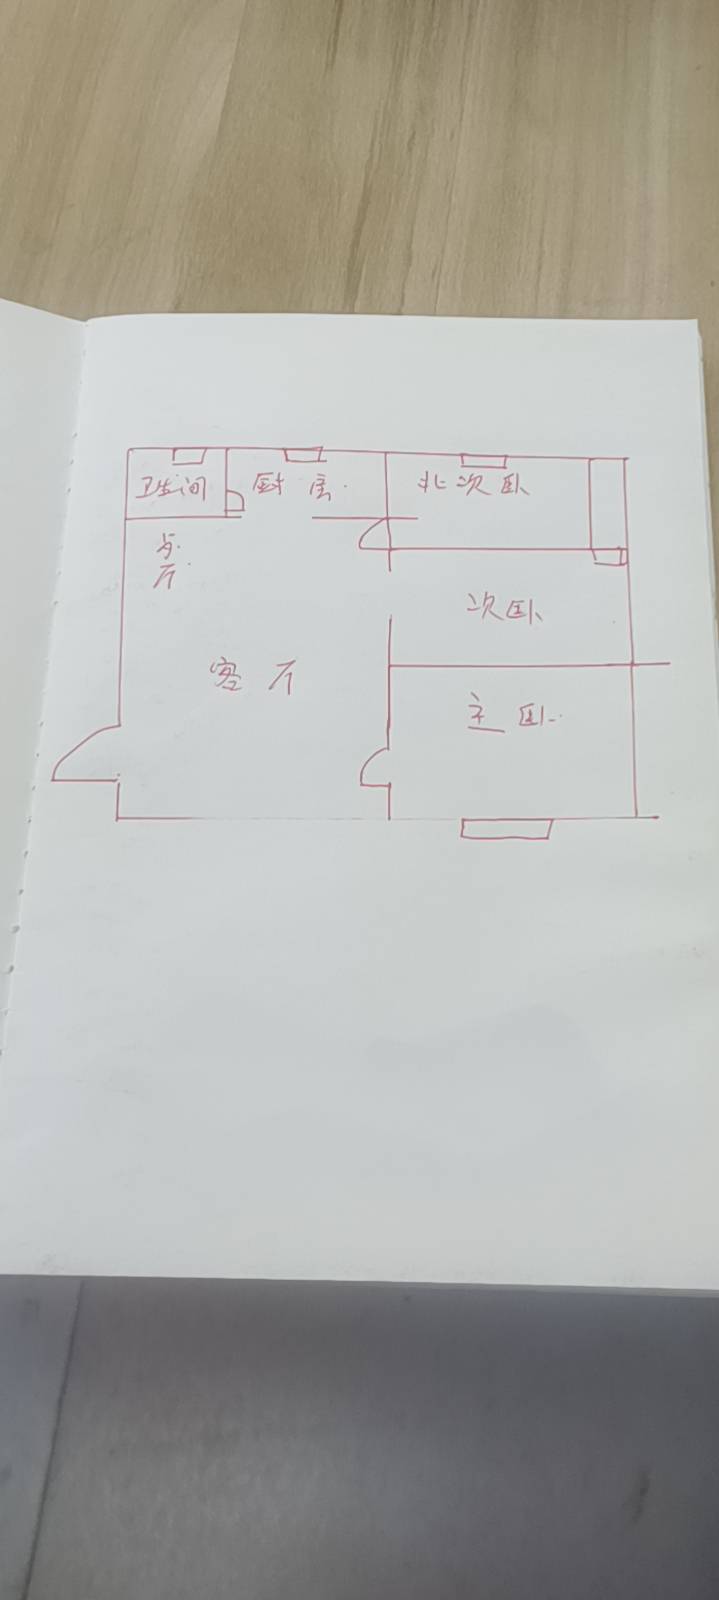 卫生间
厨房
北次卧
次卧
客厅
主卧